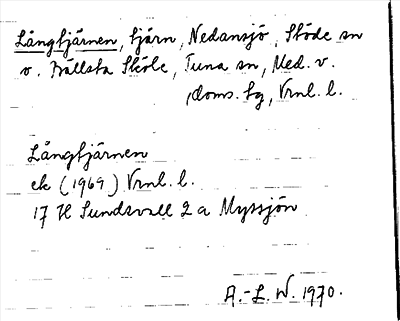 Långtjärnen, tjärn, Nedansjö, Stöde sn
o. Trällsta Sköle, Tuna sn, Med. v.
doms. tg, Vrnl. l.
Långtjärnen
ek (1969) Vrnl. l.
17 H Sundsvall 2 a Myssjön
A.-L. W. 1970.